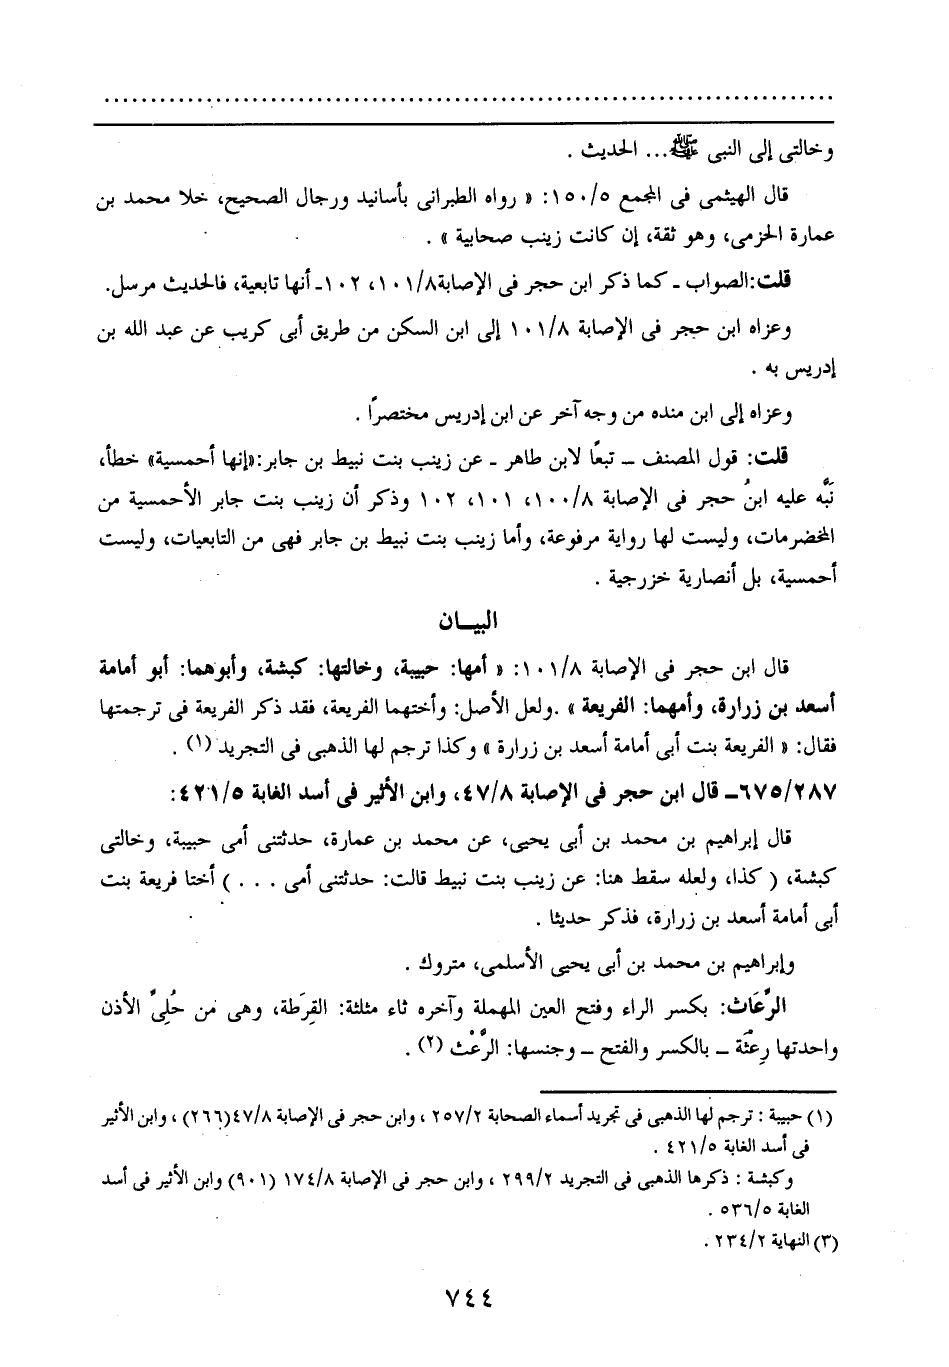 وخالتى إلى النبى ﷺ... الحديث .
قال الهيثمى فى المجمع ١٥٠/٥: « رواه الطبرانى بأسانيد ورجال الصحيح، خلا محمد بن
عمارة الحزمى، وهو ثقة، إن كانت زينب صحابية » .
قلت:الصواب ـ كما ذكر ابن حجر فى الإصابة١٠١/٨، ١٠٢ـ أنها تابعية، فالحديث مرسل.
وعزاه ابن حجر فى الإصابة ١٠١/٨ إلى ابن السكن من طريق أبى كريب عن عبد الله بن
إدريس به .
وعزاه إلى ابن منده من وجه آخر عن ابن إدريس مختصراً .
قلت: قول المصنف ــ تبعًا لابن طاهر ـ عن زينب بنت نبيط بن جابر:«إنها أحمسية» خطأ،
نَبَّه عليه ابنُ حجر فى الإصابة ١٠٠/٨، ١٠١، ١٠٢ وذكر أن زينب بنت جابر الأحمسية من
المخضرمات، وليست لها رواية مرفوعة، وأما زينب بنت نبيط بن جابر فهى من التابعيات، وليست
أحمسية، بل أنصارية خزرجية .
البيــان
قال ابن حجر فى الإصابة ١٠١/٨: « أمها: حبيبة، وخالتها: كبشة، وأبوهما: أبو أمامة
أسعد بن زرارة، وأمهما: الفريعة » .ولعل الأصل: وأختهما الفريعة، فقد ذكر الفريعة فى ترجمتها
فقال: « الفريعة بنت أبى أمامة أسعد بن زرارة » وكذا ترجم لها الذهبى فى التجريد (١) .
٦٧٥/٢٨٧ــ قال ابن حجر فى الإصابة ٤٧/٨، وابن الأثير فى أسد الغابة ٤٢١/٥:
قال إبراهيم بن محمد بن أبى يحيى، عن محمد بن عمارة، حدثتنى أمى حبيبة، وخالتى
كبشة، ( كذا، ولعله سقط هنا: عن زينب بنت نبيط قالت: حدثتنى أمى . . . ) أختا فريعة بنت
أبى أمامة أسعد بن زرارة، فذكر حديثا .
وإبراهيم بن محمد بن أبى يحيى الأسلمى، متروك .
الرِّعَاث: بكسر الراء وفتح العين المهملة وآخره ثاء مثلثة: القِرَطة، وهى من حُلِىِّ الأذن
واحدتها رِعْثَة ــ بالكسر والفتح ــ وجنسها: الرَّعْث (٢) .
(١) حبيبة : ترجم لها الذهبى فى تجريد أسماء الصحابة ٢٥٧/٢ ، وابن حجر فى الإصابة ٤٧/٨(٢٦٦) ، وابن الأثير
فى أسد الغابة ٤٢١/٥ .
وكبشة : ذكرها الذهبى فى التجريد ٢٩٩/٢ ، وابن حجر فى الإصابة ١٧٤/٨ (٩٠١) وابن الأثير فى أسد
الغابة ٥٣٦/٥ .
(٣) النهاية ٢٣٤/٢ .
٧٤٤